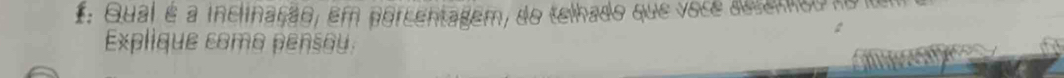 f. Qual é a inclinação, em porcentagem, do telhado que você desenhou no item
Explique como pensou.